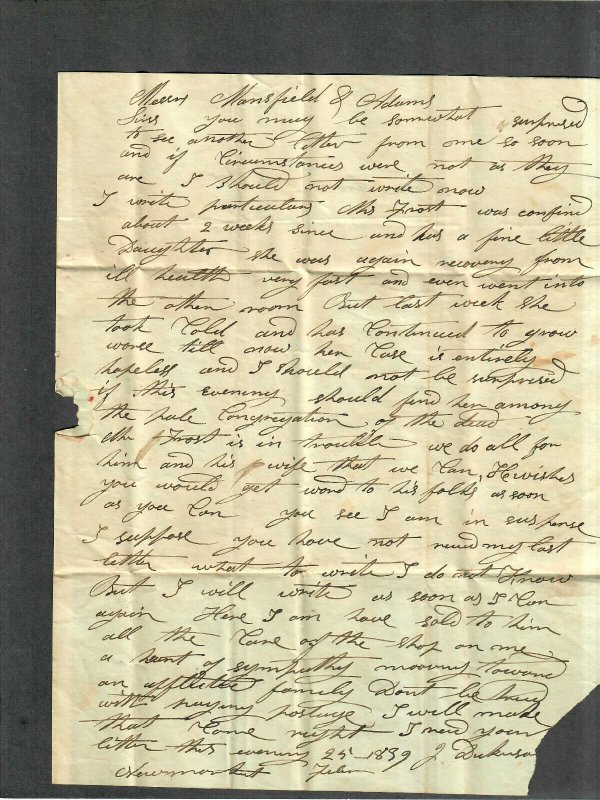 Messrs Mansfield & Adams
Sirs you may be somewhat surprised
to see another letter from me so soon
and if Circumstances were not as they
are I should not write now
I write particulars Mrs Frost was confind
about 2 weeks since and has a fine little
Daughter she was again recovery from
ill health very fast and even went into
the other room But last week she
took Cold and has Continued to grow
worse till now her Case is entirely
hopeless and I should not be surprised
if this evening should find her among
the pale Congregation of the dead
Mr Frost is in trouble we do all for
him and his wife that we Can, He wishes
you would get word to his folks as soon
as you Can you see I am in suspense
I suppose you have not read my last
letter what to write I do not Know
But I will write as soon as I Can
again Here I am have sold to him
all the Care of the Shop on me
a want of sympathy mooving toward
an afflicted family Dont be
with paying postage I will make
that Come right I your
letter this evening 25 - 1839 J.
Newmarket